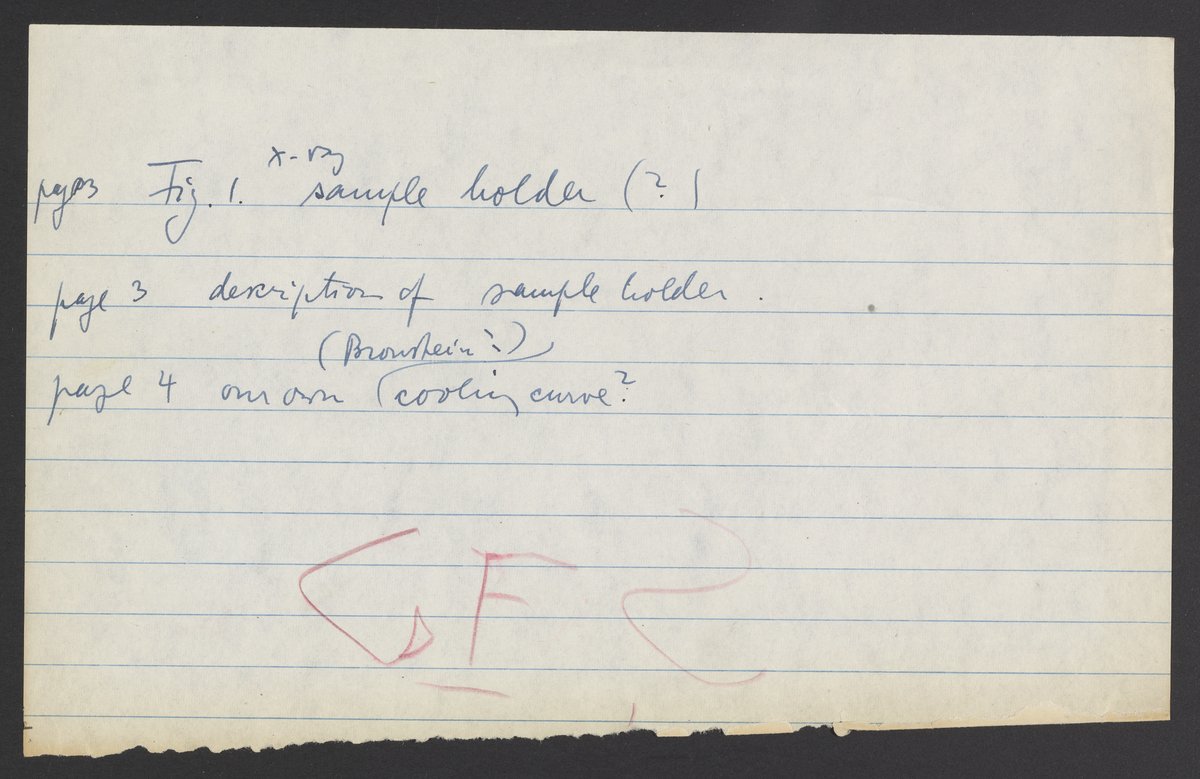 x-ray
page 3 Fig. 1. sample holder (?)
page 3 description of sample holder.
(Bronstein?)
page 4 our own (cooling curve?
GF